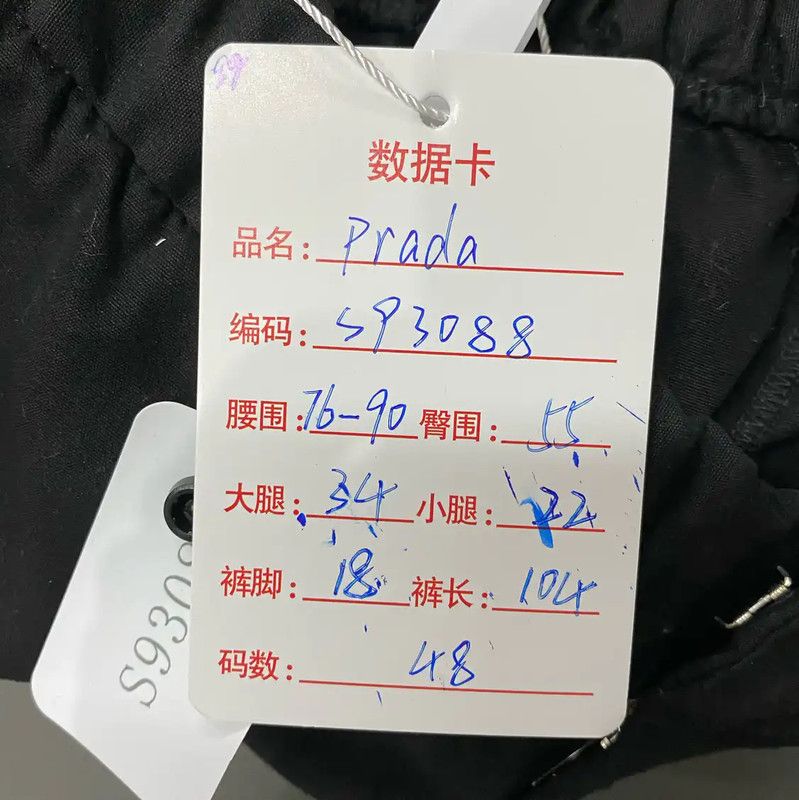 数据卡
品名: Prada
编码: S93088
腰围: 76-90 臀围: 55
大腿: 34 小腿: 22
裤脚: 18 裤长: 104
码数: 48
S9308